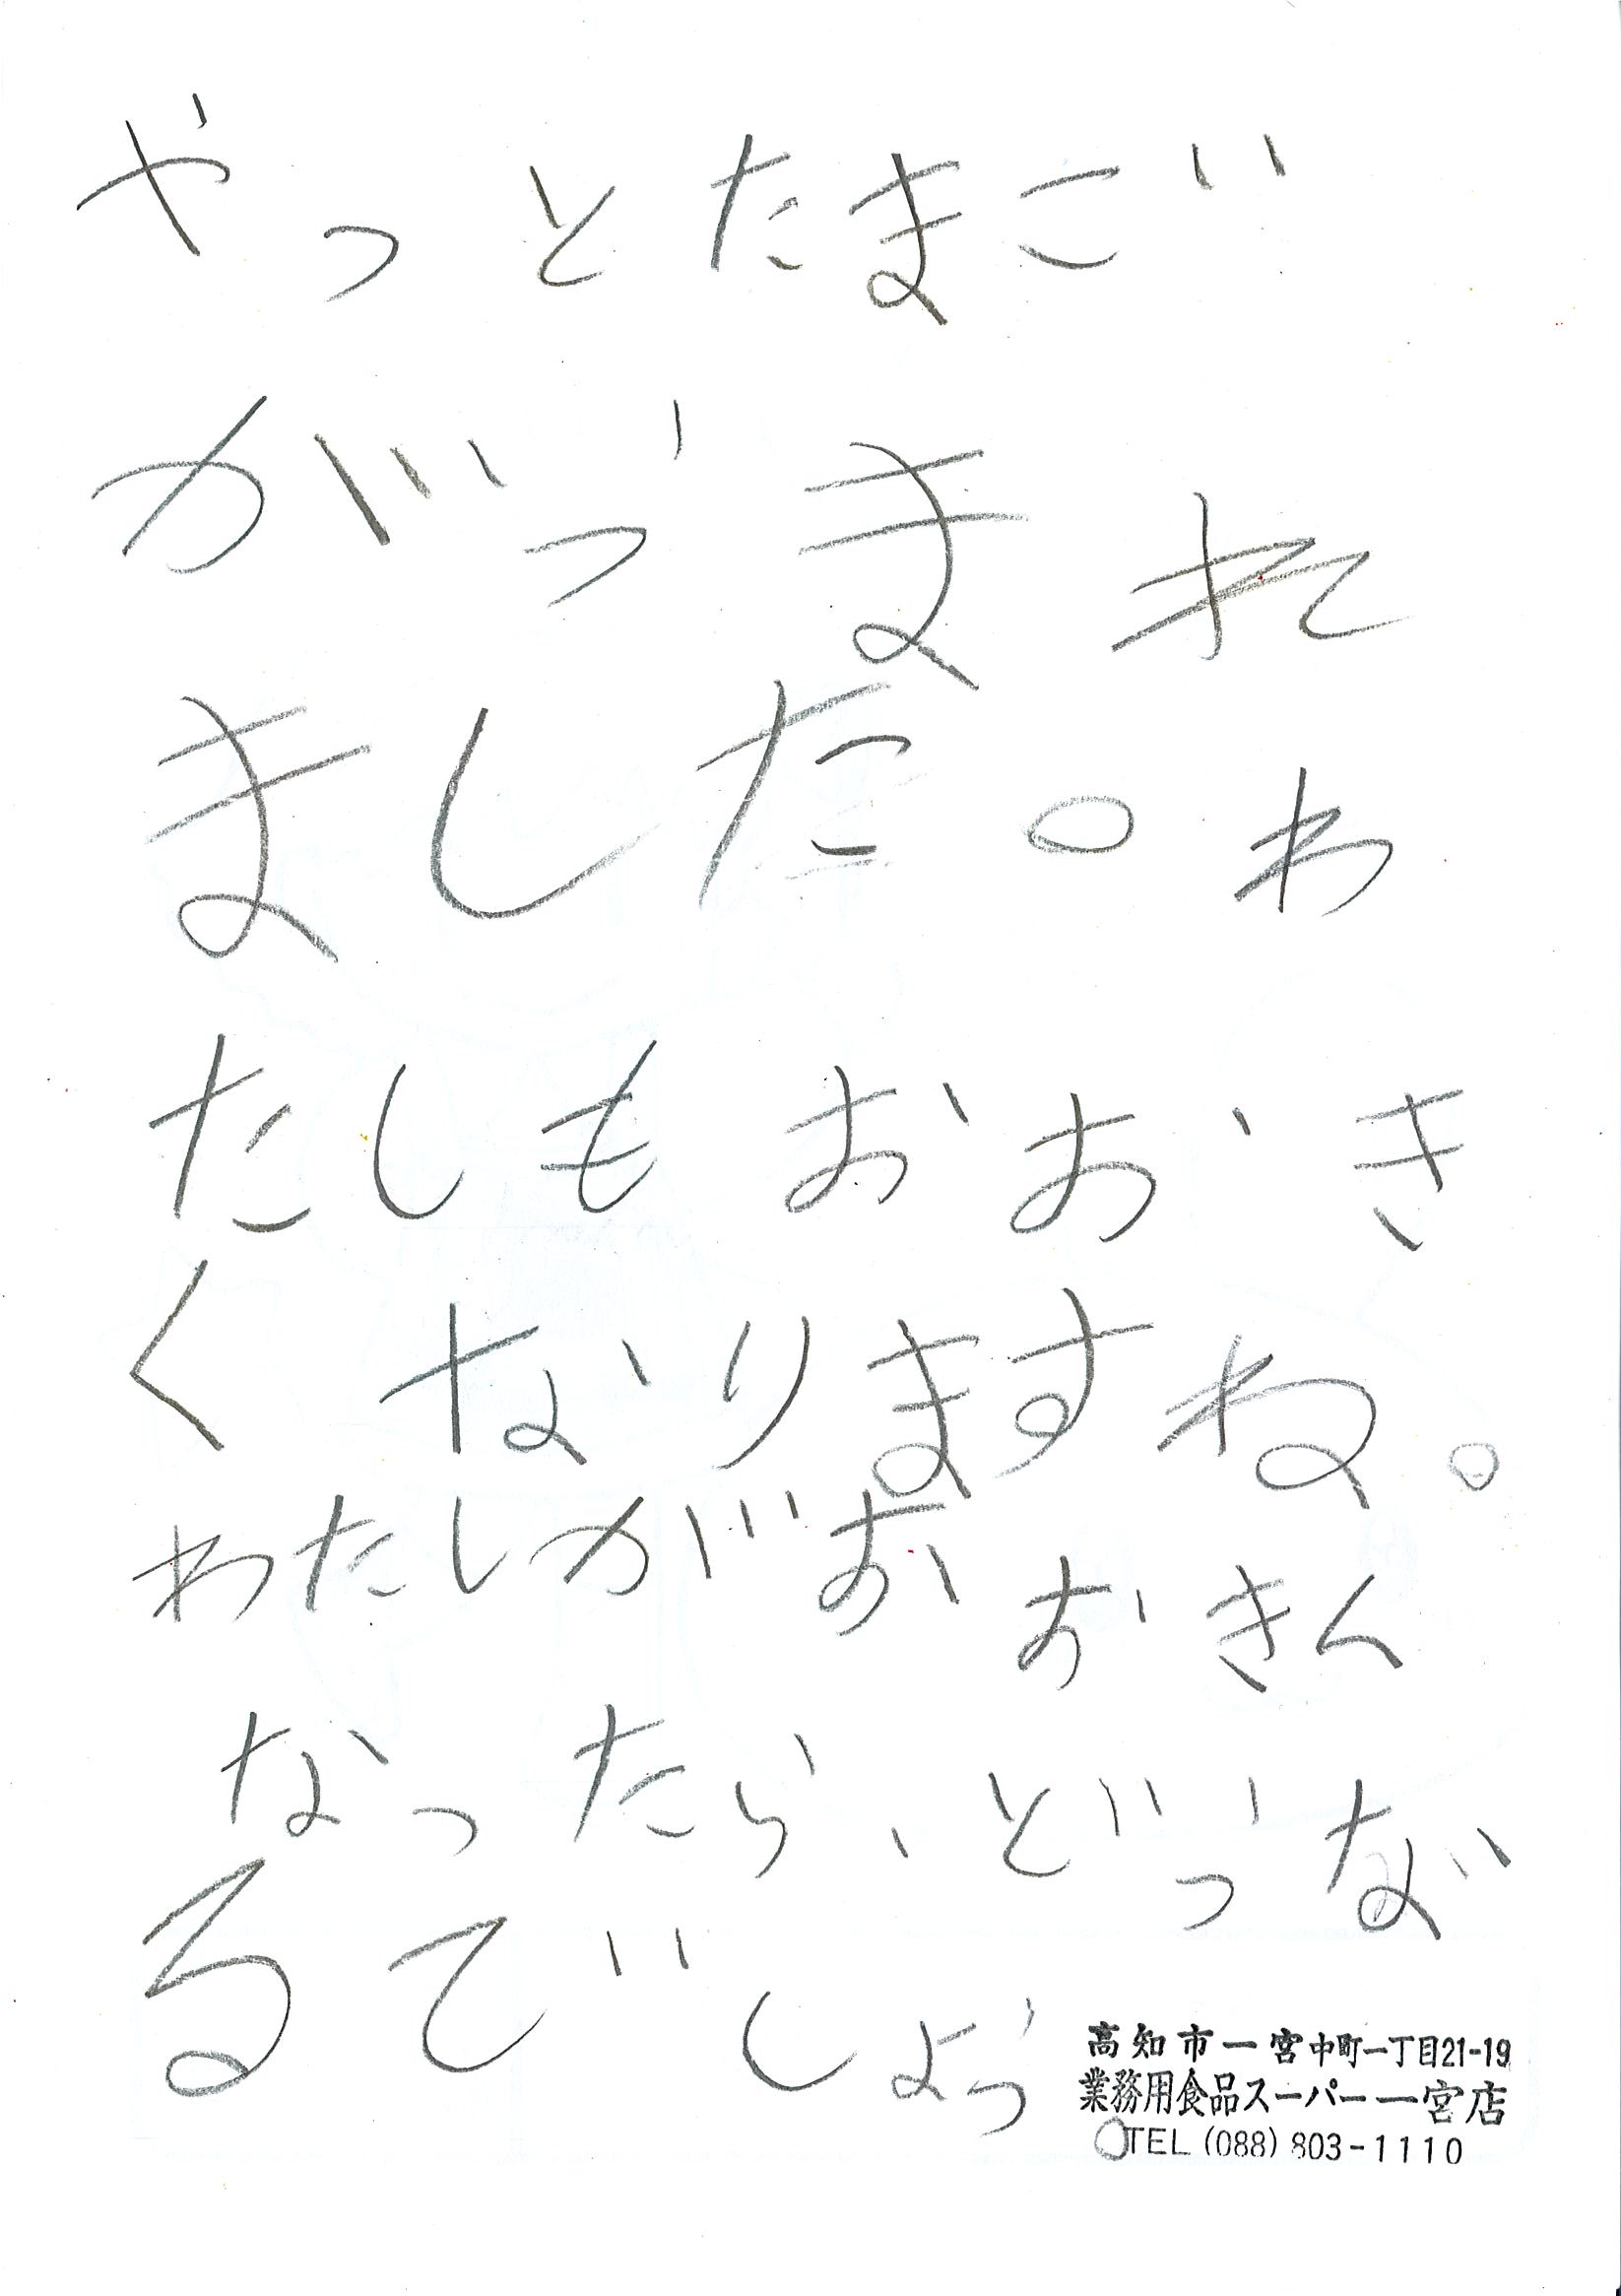 やっとたまご
がうまれ
ました。わ
たしもおおき
くなりますね。
わたしがおおきく
なったら、どうな
るでしょう。
高知市一宮中町一丁目21-19
業務用食品スーパー一宮店
TEL (088) 803-1110